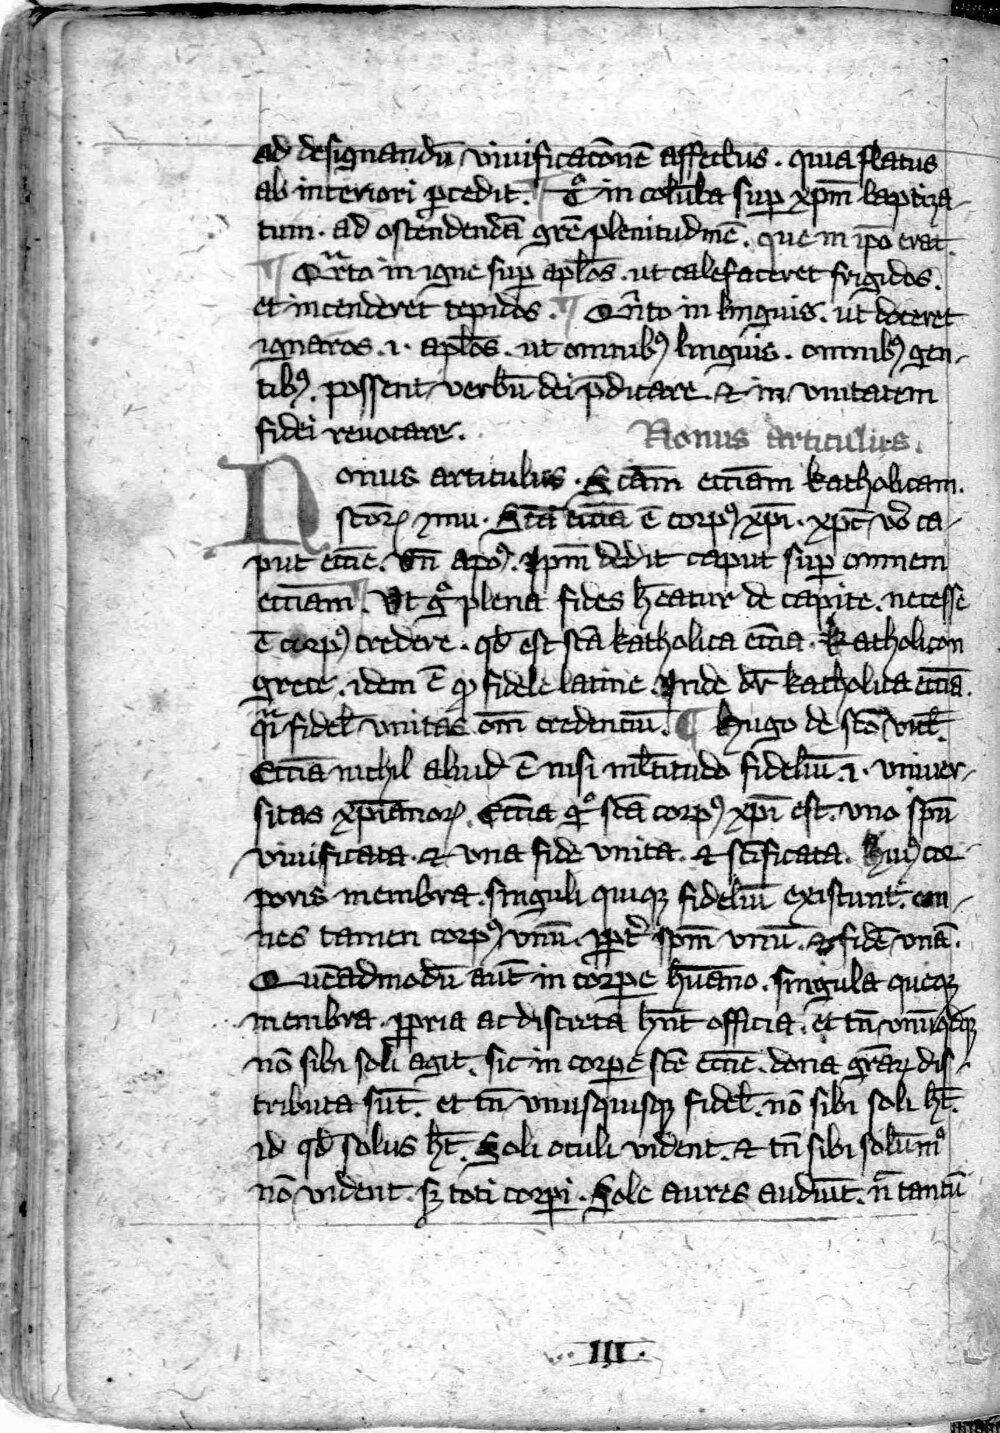 ad designandū viuificacōnē affectus . quia flatus
ab interiori ꝓcedit . ¶ Tᵒ in colūba suꝑ xp̄m baptiza-
tum . ad ostendendā gr̄e plenitudinē . que in ip̄o erat
¶ Qͣrto in igne suꝑ apl̄os . ut calefaceret frigidos .
et incenderet tepidos . ¶ Qi̅nto in linguis . ut doceret
ignaros .i. apl̄os . ut omnibꝰ linguis . omnibꝰ gen-
tibꝰ . possent verbū dei p̄dicare . et in vnitatem
fidei reuocare .
Nonus articulus .
Nonus articulus . Scām eccīam katholicam .
sctōrꝝ  . Sctā eccīa ē corpꝰ xp̄i . xp̄c v̄o ca-
put eccīe . Vn̄ apꝰ . Ip̄m dedit caput suꝑ omnem
eccīam . Vt gͦ plena fides h̄eatur de capite . necesse
ē corpꝰ credere . qd̄ est sctā katholica eccīa . Katholicon
grece . idem ē qͥ fidele latine . Inde dr̄ katholica eccīa .
qͥ fidel̄ vnitas om̄ credenciū . ¶ Hugo de sctō vict̄ .
Eccīa nichil aliud ē nisi ml̄titudo fideliū .i. vniuer-
sitas xp̄ianorꝝ . Eccīa gͦ sctā corpꝰ xp̄i est . vno sp̄u
viuificata . et vna fide vnita . et sc̄ificata . Huiꝰ cor-
poris membra . singuli quiqꝫ fideliū existunt . om-
nes tamen corpꝰ vnū . ꝓpt̄ sp̄m vnū . et fidē vnā .
Quēadmodū aut̄ in corꝑe hūano . singula queqꝫ
membra . ꝓpria ac discreta hn̄t officia . et tn̄ vnūqdqꝫ
nō sibi soli agit . sic in corꝑe sctē eccīe . dona gr̄aꝝ dis-
tributa sūt . et tn̄ vnusquisqꝫ fidel̄ . nō sibi soli h̄t .
id qd̄ solus h̄t . Soli oculi vident . et tn̄ sibi solūmͦ
nō vident . sꝫ toti corpi . Sole aures audiūt . n̄ tantū
. III .